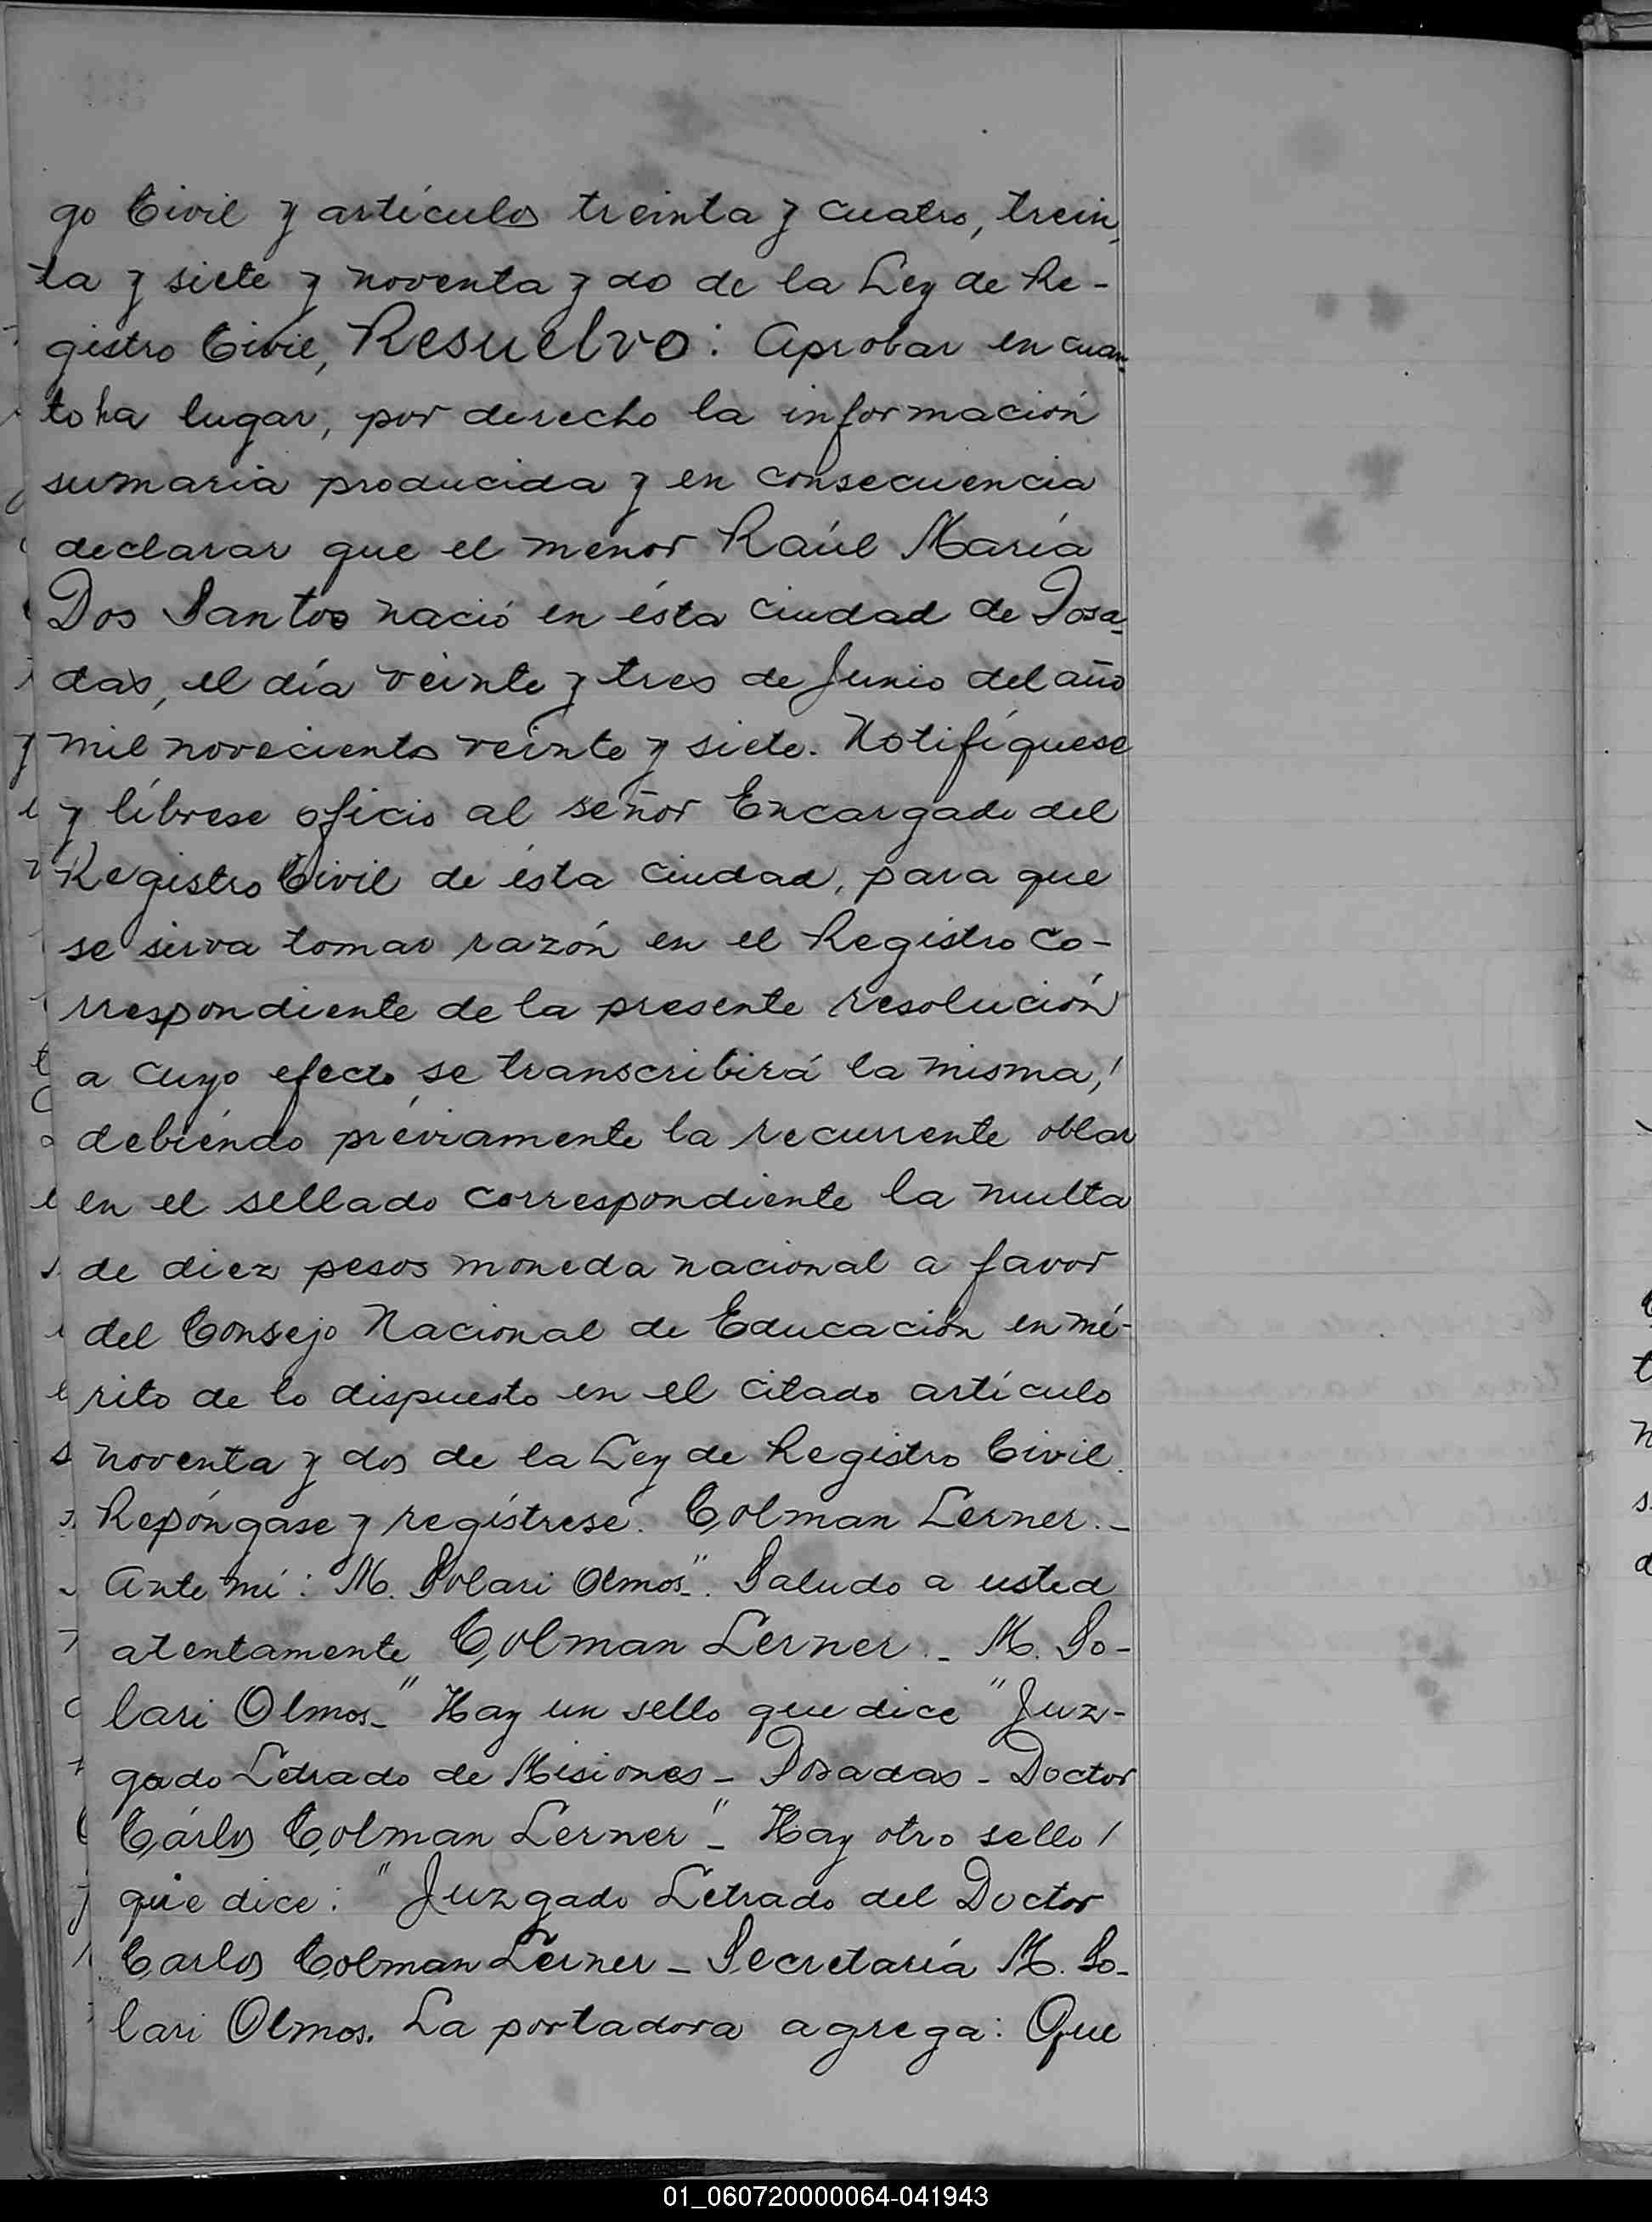 go Civil y artículos treinta y cuatro, trein,
ta y siete y noventa y do de la Ley de Re-
gistro Civil, Resuelvo: Aprobar en cuan-
to ha lugar, por derecho la información
sumaria producida y en consecuencia
declarar que el menor Raúl María
Dos Santos nació en ésta ciudad de Posa-
das, el día veinte y tres de Junio del año
mil novecientos veinte y siete. Notifíquese
y líbrese oficio al señor Encargado del
Registro Civil de ésta ciudad, para que
se sirva tomar razón en el Registro co-
rrespondiente de la presente resolución
a cuyo efecto, se transcribirá la misma,/
debiéndo préviamente la recurrente oblar
en el sellado correspondiente la multa
de diez pesos moneda nacional a favor
del Consejo Nacional de Educación en mé-
rito de lo dispuesto en el citado artículo
noventa y dos de la Ley de Registro Civil.
Repóngase y regístrese. Colman Lerner.-
Ante mí: M. Solari Olmos-". Saludo a usted
atentamente Colman Lerner.- M. So-
lari Olmos-" Hay un sello que dice "Juz-
gado Letrado de Misiones - Posadas - Doctor
Cárlos Colman Lerner"- Hay otro sello /
que dice: "Juzgado Letrado del Doctor
Carlos Colman Lerner - Secretaría M. So-
lari Olmos. La portadora agrega: Que
01_060720000064-041943